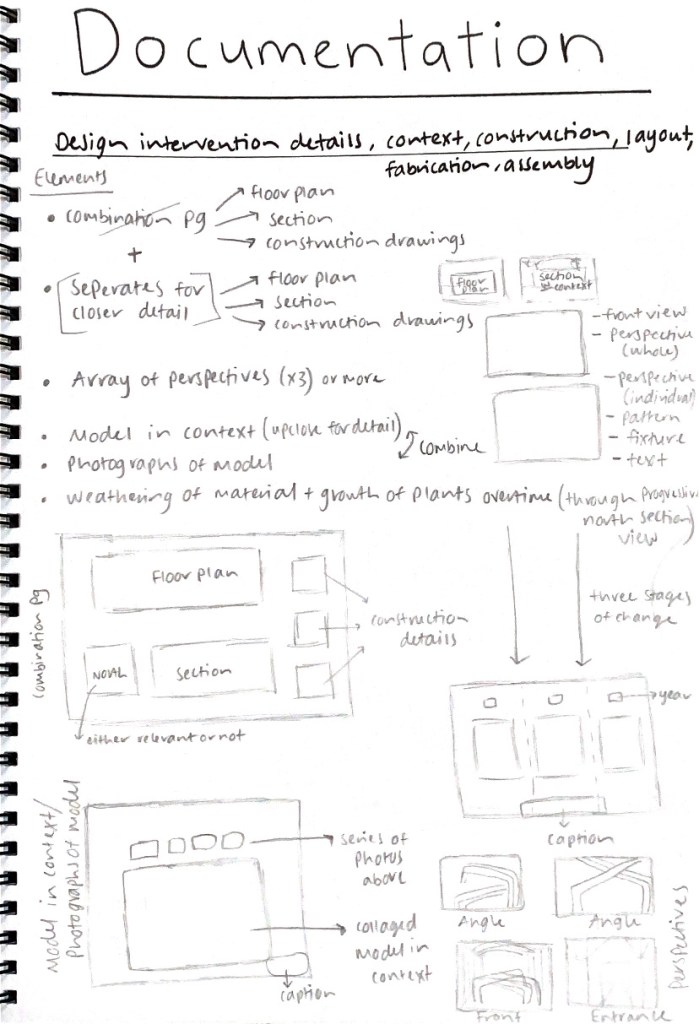 Documentation
Design intervention details, context, construction, layout,
fabrication, assembly
Elements
• combination pg
floor plan
section
construction drawings
+
• seperates for
closer detail
floor plan
section
construction drawings
floor
plan
section
context
- front view
- perspective
(whole)
- perspective
(individual)
- pattern
- fixture
- text
• Array of perspectives (x3) or more
• Model in context (upclose for detail)
• Photographs of model
combine
• weathering of material + growth of plants overtime (through progressive
north section
view)
three stages
of change
combination pg
Floor plan
section
construction
details
either relevant or not
year
caption
Model in context/
Photographs of model
series of
photos
above
collaged
model in
context
caption
Angle
Angle
Front
Entrance
Perspectives